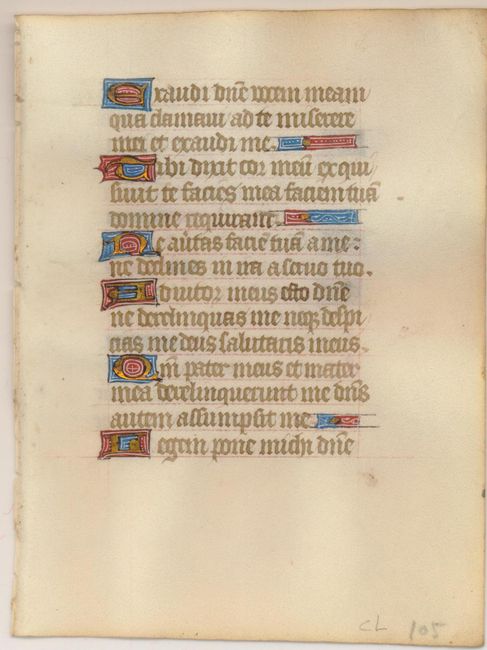 Exaudi dñe vocem meam
qua clamaui ad te miserere
mei et exaudi me.
Tibi dixit cor meũ exqui
siuit te facies mea faciem tuã
domine requiram.
Ne auertas faciẽ tuã a me:
ne declines in ira a seruo tuo.
Adiutor meus esto dñe
ne derelinquas me neqz despi
cias me deus salutaris meus.
Qm̃ pater meus et mater
mea dereliquerunt me dñs
autem assumpsit me
Legem pone michi dñe
CL 105